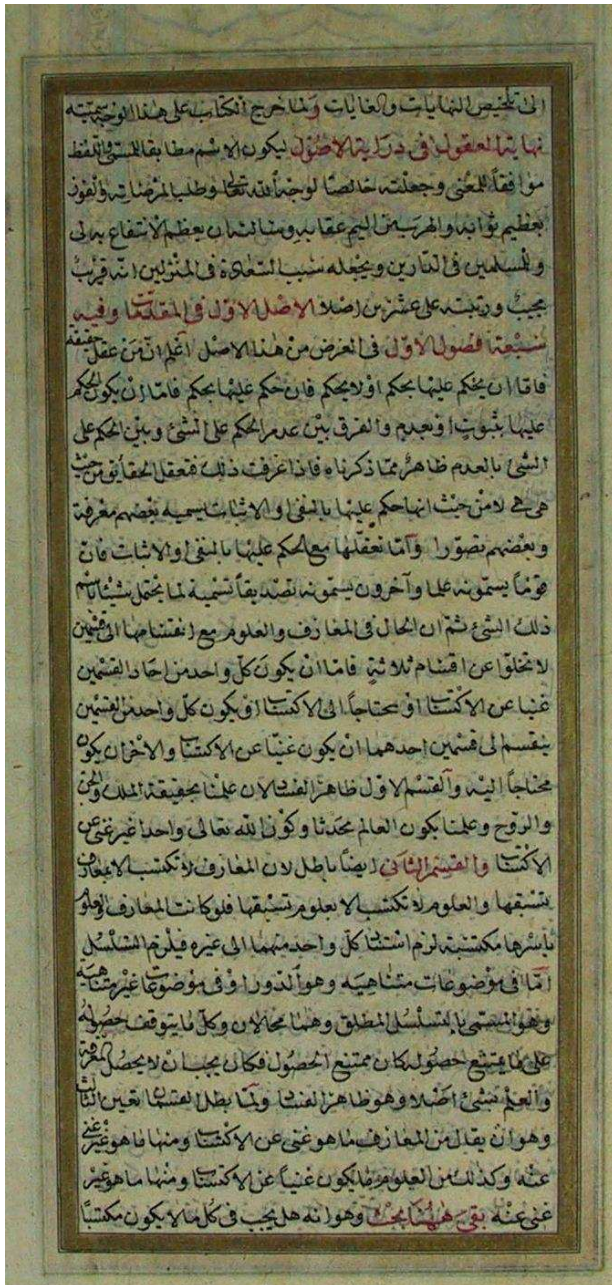 الى تلخيص النهايات والغايات ولما خرج الكتاب على هذا الوجه سميته
نهاية العقول فى دراية الاصول ليكون الاسم مطابقا للمسمى واللفظ
موافقا للمعنى وجعلته خالصا لوجه الله تعالى وطلبا لمرضاته والفوز
بعظيم ثوابه والهرب من اليم عقابه وسالته ان يعظم الانتفاع به لى
وللمسلمين فى الدارين ويجعله سبب السعادة فى المنزلين انه قريب
مجيب ورتبته على عشرين اصلا الاصل الاول فى المقدمات وفيه
سبعة فصول الاول فى الغرض من هذا الاصل اعلم ان من عقل حقيقة
فاما ان يحكم عليها بحكم اولا يحكم فان حكم عليها بحكم فاما ان يكون الحكم
عليها بثبوت او بعدم والفرق بين عدم الحكم على الشئ وبين الحكم على
الشئ بالعدم ظاهر مما ذكرناه فاذا عرفت ذلك فتعقل الحقايق من حيث
هى هى لا من حيث انها حكم عليها بالنفى او الاثبات يسميه بعضهم معرفة
وبعضهم تصورا واما تعقلها مع الحكم عليها بالنفى او الاثبات فان
قوما يسمونه علما وآخرون يسمونه تصديقا تسمية لما يحتمل شيئا باسم
ذلك الشئ ثم ان الحال فى المعارف والعلوم مع انقسامها الى قسمين
لا تخلوا عن اقسام ثلاثة فاما ان يكون كل واحد من احاد القسمين
غنيا عن الاكتساب او محتاجا الى الاكتساب او يكون كل واحد من القسمين
ينقسم لى قسمين احدهما ان يكون غنيا عن الاكتساب والاخر ان يكون
محتاجا اليه والقسم الاول ظاهر الفساد لان علمنا بحقيقة الملك والجن
والروح وعلمنا بكون العالم محدثا وكون الله تعالى واحدا غير غنى عن
الاكتساب والقسم الثانى ايضا باطل لان المعارف لا تكتسب الا بمعارف
تسبقها والعلوم لا تكتسب الا بعلوم تسبقها فلو كانت المعارف والعلوم
باسرها مكتسبة لزم استناد كل واحد منهما الى غيره فيلزم التسلسل
اما فى موضوعات متناهيه وهو الدور او فى موضوعات غير متناهيه
وهو المسمى بالتسلسل المطلق وهما محالان وكل ما يتوقف حصوله
على ما يمتنع حصوله كان ممتنع الحصول فكان يجب ان لا يحصل المعرفة
والعلم بشئ اصلا وهو ظاهر الفساد ولما بطل القسمان تعين الثالث
وهو ان يقال من المعارف ما هو غنى عن الاكتساب ومنها ما هو غير غنى
عنه وكذلك من العلوم ما يكون غنيا عن الاكتساب ومنها ما هو غير
غنى عنه بقى ههنا بحث وهو انه هل يجب فى كل ما لا يكون مكتسبا